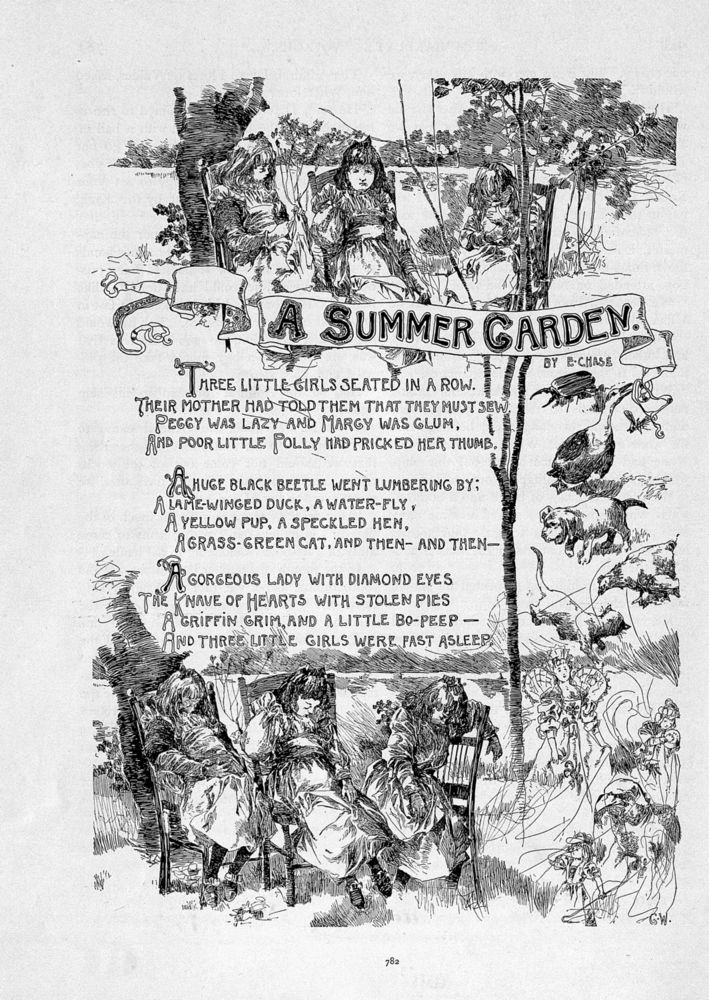 A SUMMER GARDEN.
BY E. CHASE
THREE LITTLE GIRLS SEATED IN A ROW.
THEIR MOTHER HAD TOLD THEM THAT THEY MUST SEW.
PEGGY WAS LAZY AND MARGY WAS GLUM,
AND POOR LITTLE POLLY HAD PRICKED HER THUMB.
A HUGE BLACK BEETLE WENT LUMBERING BY;
A LAME-WINGED DUCK, A WATER-FLY,
A YELLOW PUP, A SPECKLED HEN,
A GRASS-GREEN CAT, AND THEN- AND THEN—
A GORGEOUS LADY WITH DIAMOND EYES
THE KNAVE OF HEARTS WITH STOLEN PIES
A GRIFFIN GRIM, AND A LITTLE BO-PEEP —
AND THREE LITTLE GIRLS WERE FAST ASLEEP.
G.W.
782